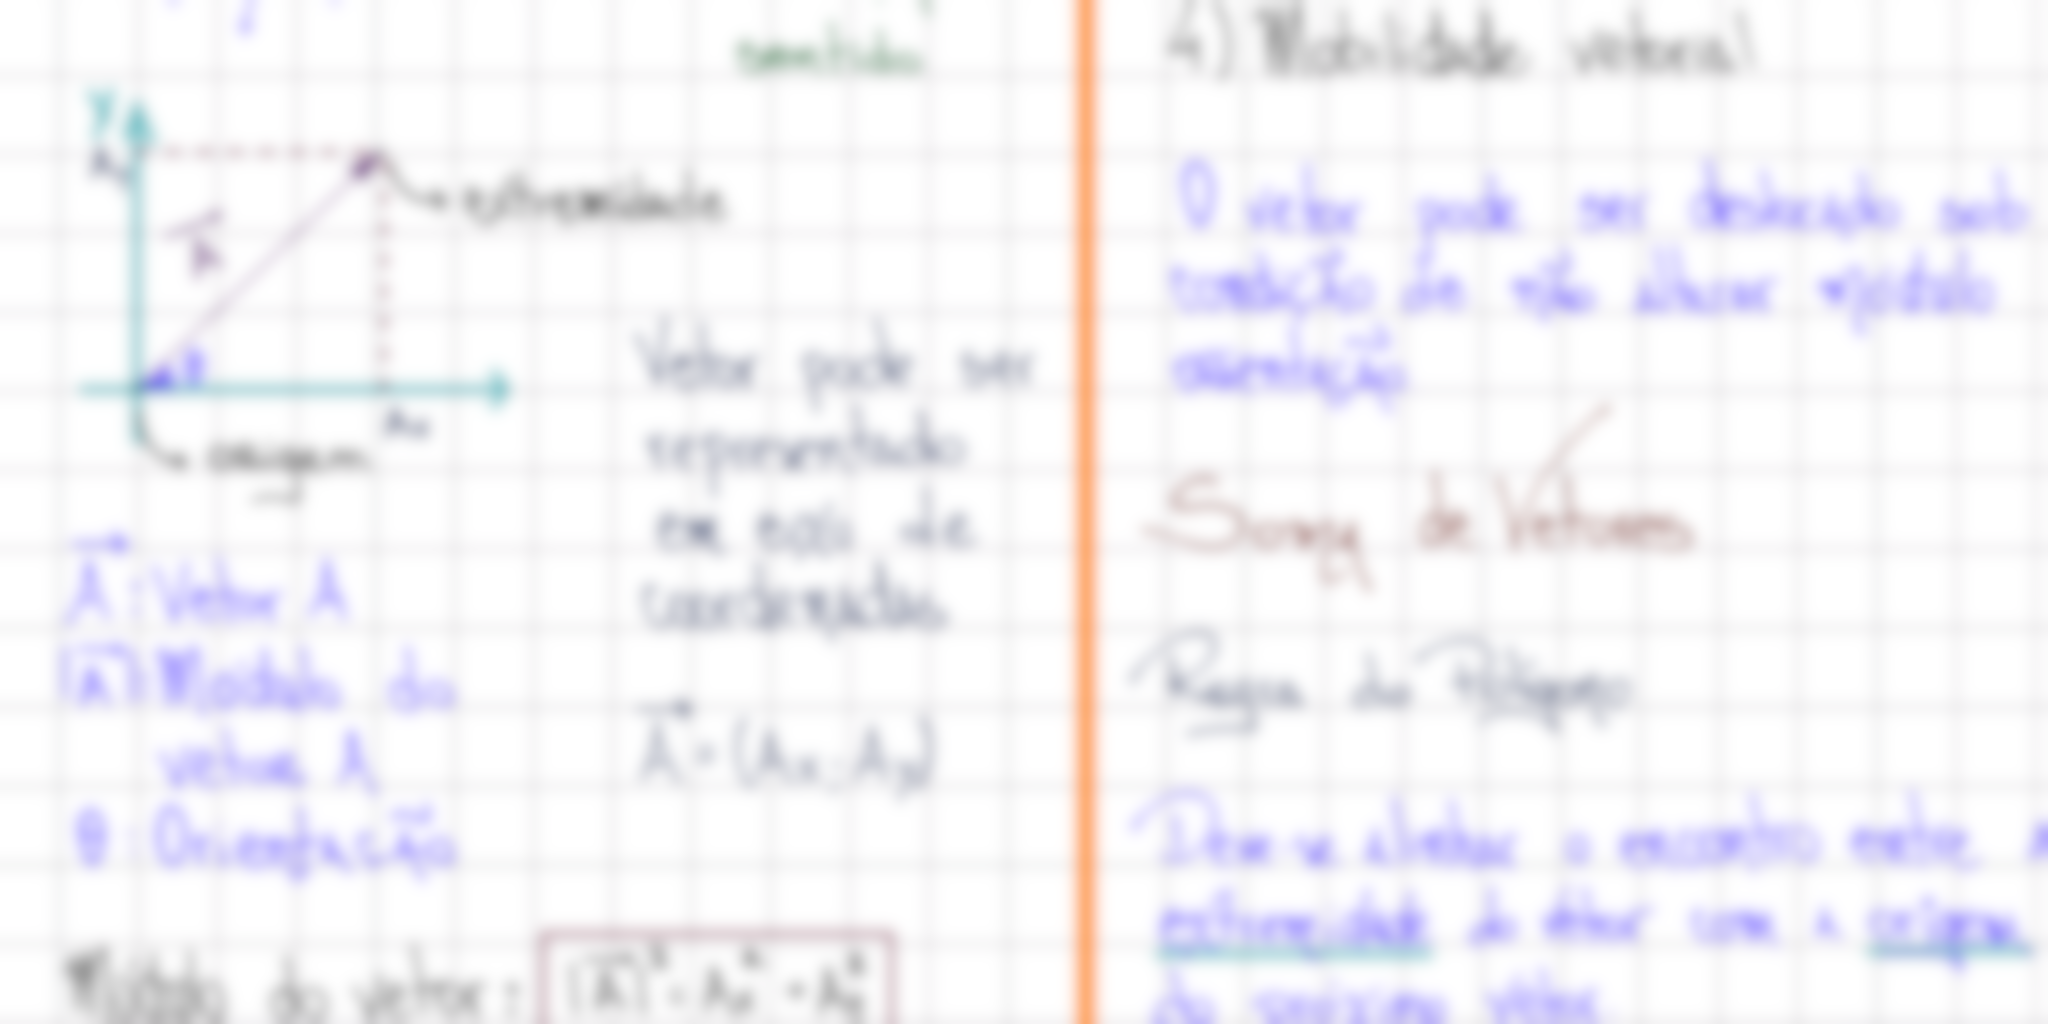 sentido
y
Ay
A
extremidade
θ
Ax
origem
Vetor pode ser
representado
em eixo de
coordenadas
A: Vetor A
|A|: Módulo do
vetor A
θ: Orientação
A = (Ax, Ay)
Módulo do vetor: |A|² = Ax² + Ay²
4) Mobilidade vetorial
O vetor pode ser deslocado sob
condição de não alterar módulo
orientação
Soma de Vetores
Regra do Polígono
Deve-se o encontro entre a
extremidade do vetor com a origem
do próximo vetor